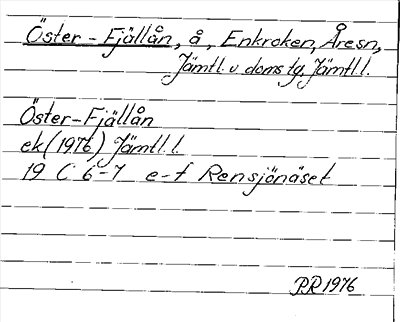 Öster-Fjällån, å, Enkroken, Åresn,
Jämtl. v doms tg, Jämtl l.
Öster-Fjällån
ek (1976) Jämtl. l.
19 C 6-7 e-f Rensjönäset
P.R 1976